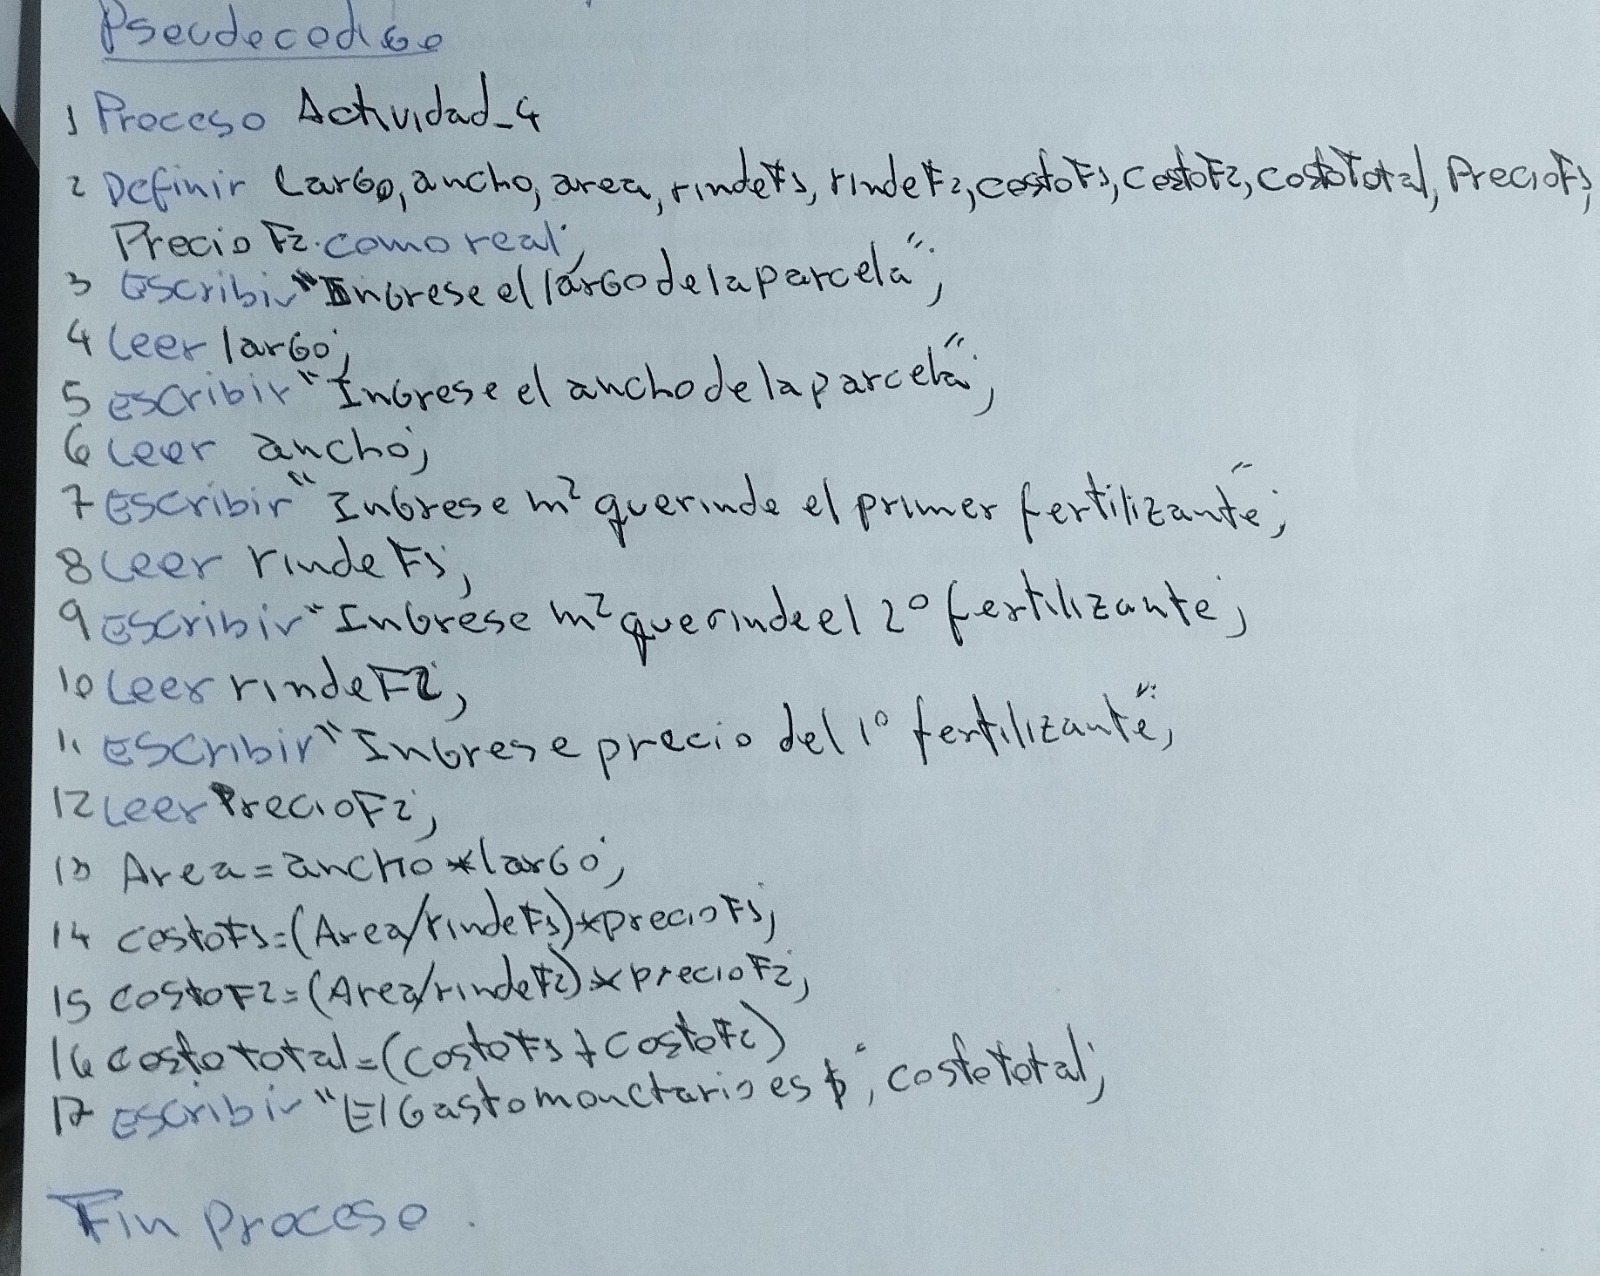 Pseudocodigo
1 Proceso Actividad_4
2 Definir Largo, ancho, area, rindeF1, rindeF2, costoF1, costoF2, costoTotal, PrecioF1,
Precio F2. como real;
3 Escribir "Ingrese el largo de la parcela";
4 Leer largo;
5 escribir "Ingrese el ancho de la parcela";
6 Leer ancho;
7 Escribir "Ingrese m² que rinde el primer fertilizante";
8 Leer rinde F1;
9 Escribir "Ingrese m² que rinde el 2º fertilizante;
10 Leer rinde F2;
11 Escribir "Ingrese precio del 1º fertilizante";
12 Leer PrecioF2;
13 Area = ancho * largo;
14 costoF1 = (Area/rinde F1) * precio F1;
15 costoF2 = (Area/rinde F2) * precio F2;
16 costo total = (costoF1 + costoF2)
17 Escribir "El Gasto monetario es $", costo total;
Fin proceso.